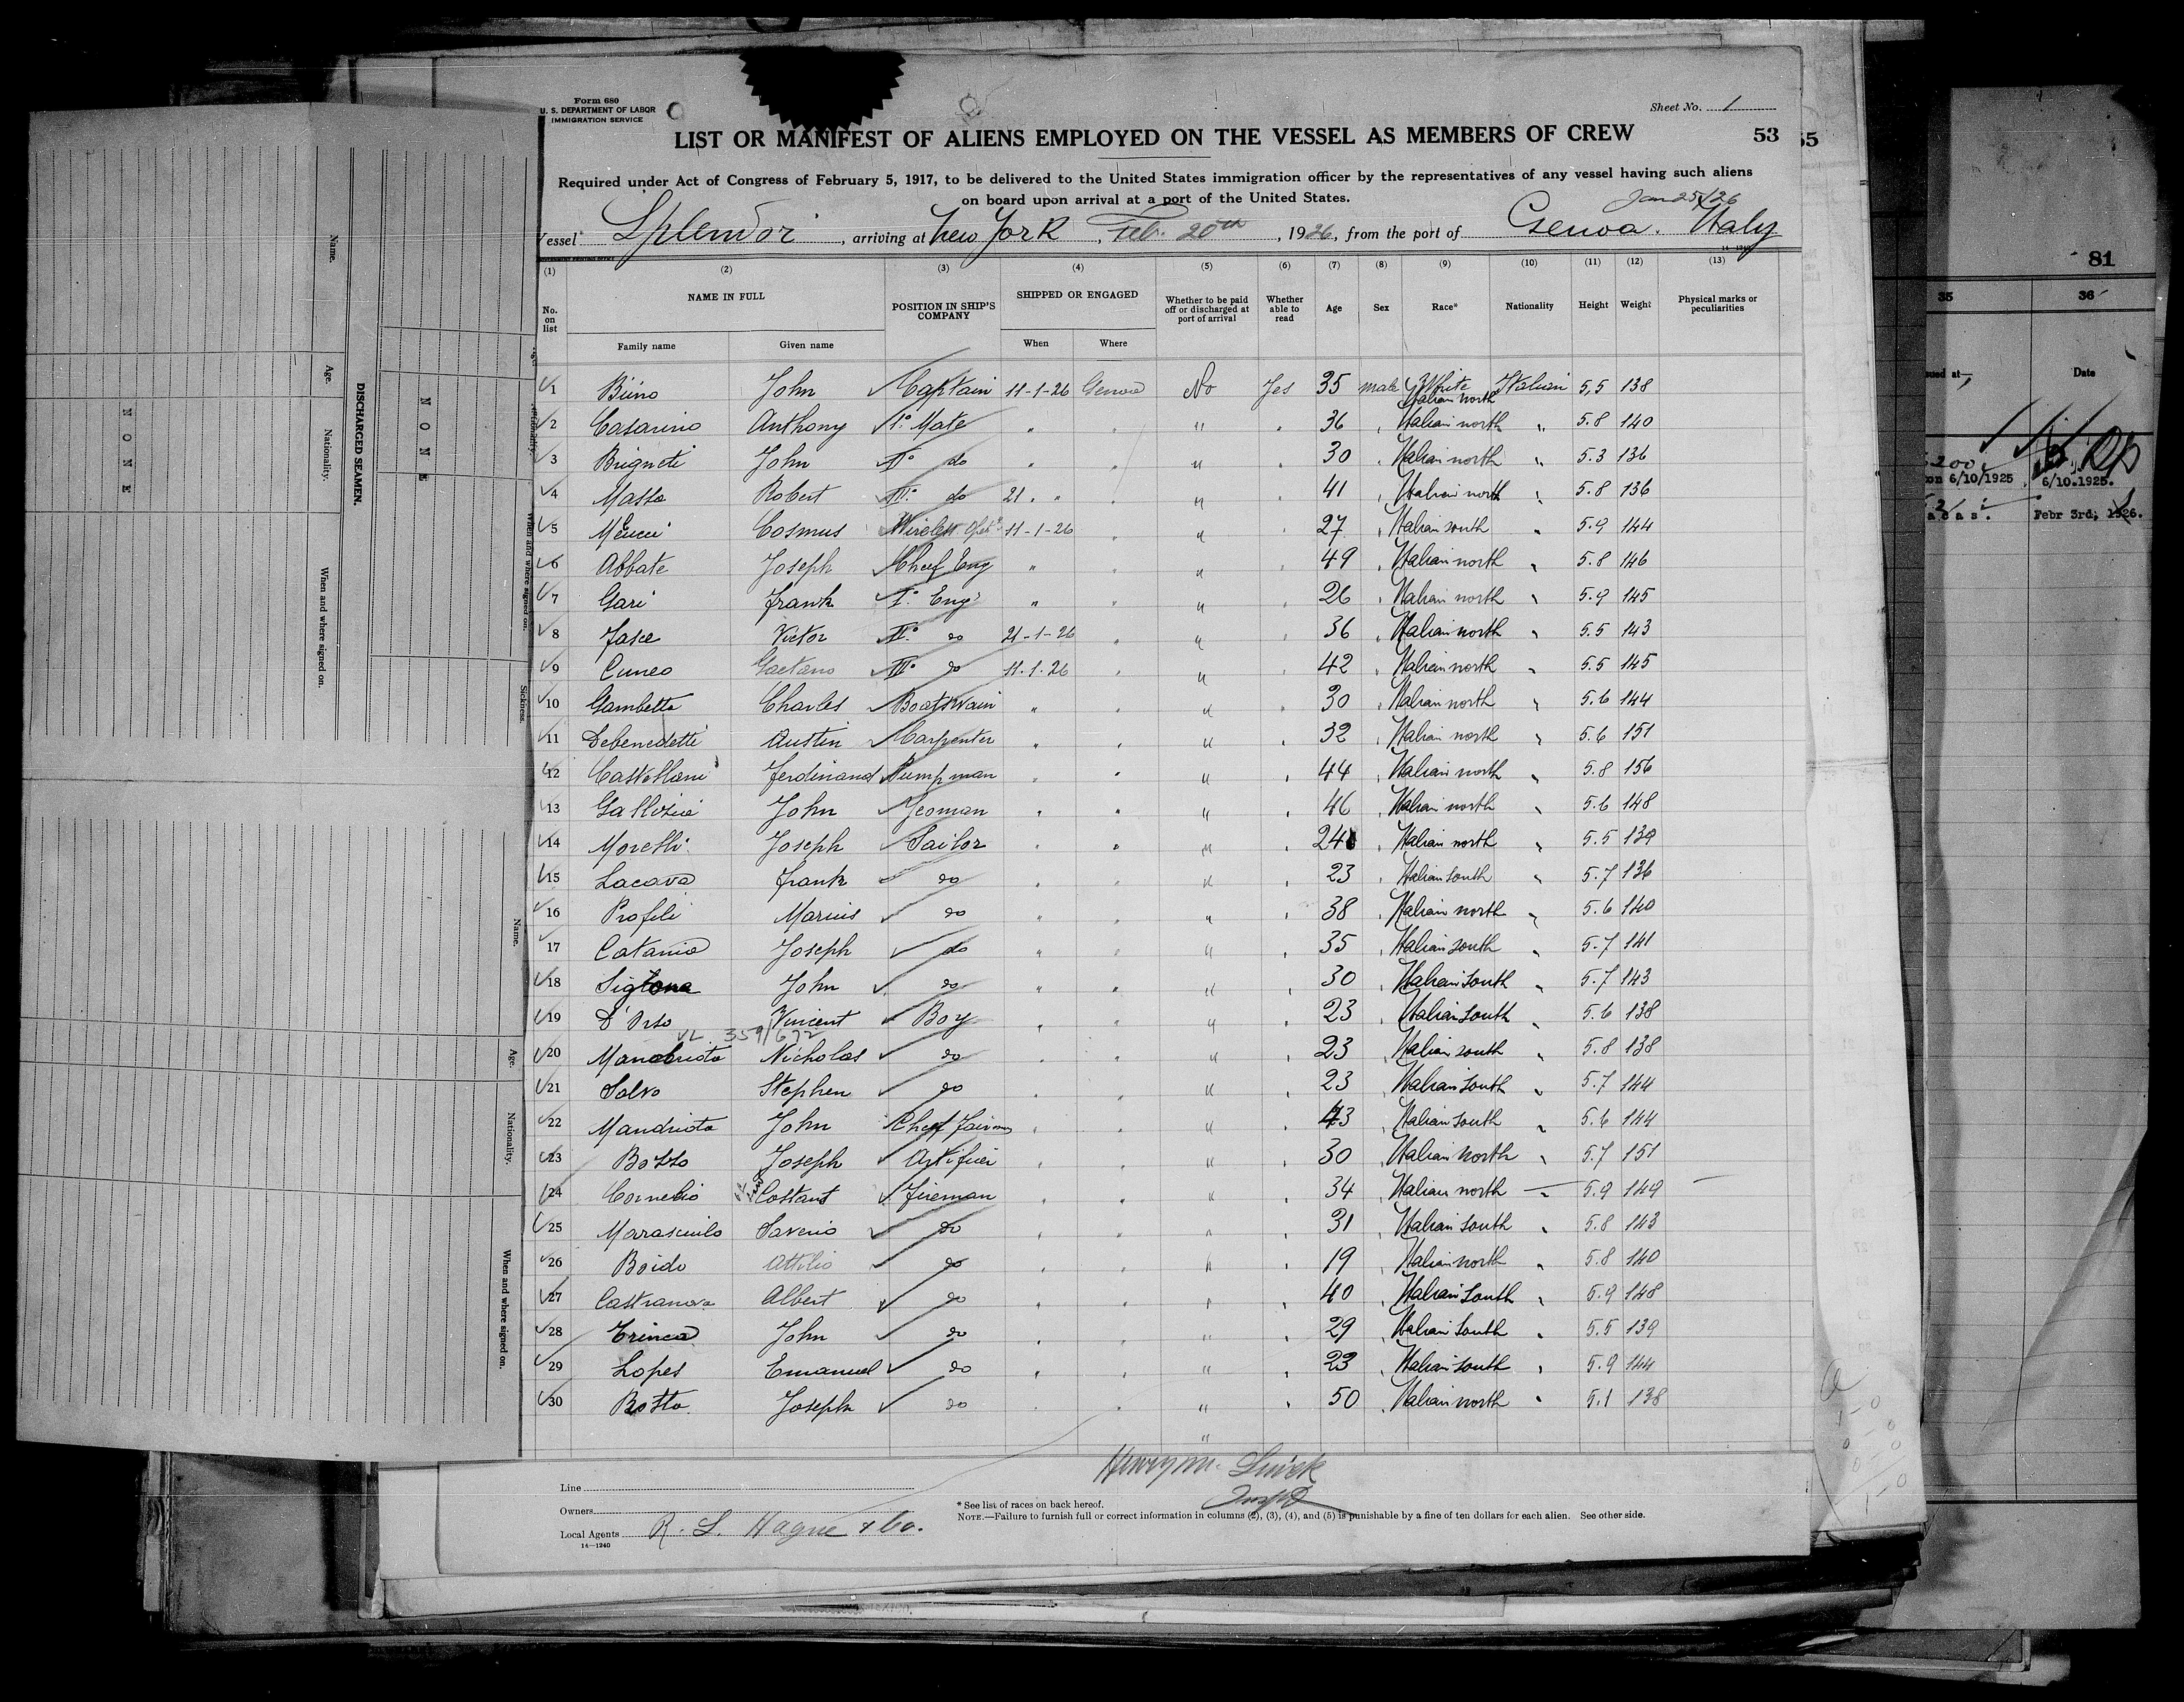 Form 680
U. S. DEPARTMENT OF LABOR
IMMIGRATION SERVICE
Sheet No. 1
LIST OR MANIFEST OF ALIENS EMPLOYED ON THE VESSEL AS MEMBERS OF CREW 53
55
Required under Act of Congress of February 5, 1917, to be delivered to the United States immigration officer by the representatives of any vessel having such aliens
on board upon arrival at a port of the United States.
Jan 25/26
Vessel Splendor, arriving at New York, Feb. 20th, 1926, from the port of Genoa. Italy
(1) (2) (3) (4) (5) (6) (7) (8) (9) (10) (11) (12) (13)
No. on list NAME IN FULL POSITION IN SHIP'S COMPANY SHIPPED OR ENGAGED Whether to be paid off or discharged at port of arrival Whether able to read Age Sex Race* Nationality Height Weight Physical marks or peculiarities
Family name Given name When Where
1 John Captain 11-1-26 Genoa No Yes 35 male White Italian north Italian 5,5 138
2 Casarino Anthony 1° Mate " " " " 36 " Italian north " 5.8 140
3 Brigneti John II° do " " " " 30 " Italian north " 5.3 136
4 Massa Robert III° do 21 " " " " " 41 " Italian north " 5.8 136
5 Meucci Cosmus Wireless Opt. 11-1-26 " " " 27 " Italian south " 5.9 144
6 Abbate Joseph Cheef Eng " " " " 49 " Italian north " 5.8 146
7 Gari Frank I° Eng " " " " 26 " Italian north " 5.9 145
8 Fasce Victor II° do 21-1-26 " " " 36 " Italian north " 5.5 143
9 Cuneo Gaetano III° do 11.1.26 " " " 42 " Italian north " 5.5 145
10 Gambetta Charles Boatswain " " " " 30 " Italian north " 5.6 144
11 Debenedetti Austin Carpenter " " " " 32 " Italian north " 5.6 151
12 Castellani Ferdinand Pumpman " " " " 44 " Italian north " 5.8 156
13 John Yeoman " " " " 46 " Italian north " 5.6 148
14 Morelli Joseph Sailor " " " " 24 " Italian north " 5.5 139
15 Lacava Frank do " " " " 23 " Italian south " 5.7 136
16 Profili Marius do " " " " 38 " Italian north " 5.6 140
17 Catania Joseph do " " " " 35 " Italian south " 5.7 141
18 Sigtona John do " " " " 30 " Italian South " 5.7 143
19 D'Orso Vincent Boy " " " " 23 " Italian South " 5.6 138
VL 359/672
20 Mandriota Nicholas do " " " " 23 " Italian south " 5.8 138
21 Salvo Stephen do " " " " 23 " Italian South " 5.7 144
22 Mandriota John Cheef " " " " 43 " Italian south " 5.6 144
23 Bozzo Joseph Artificier " " " " 30 " Italian North " 5.7 151
24 Cornelio Costant Fireman " " " " 34 " Italian north " 5.9 149
25 Saverio do " " " " 31 " Italian South " 5.8 143
26 Boido Attilio do " " " " 19 " Italian north " 5.8 140
27 Castranova Albert do " " " " 40 " Italian South " 5.9 148
28 Erinca John do " " " " 29 " Italian South " 5.5 139
29 Lopes Emanuel do " " " " 23 " Italian south " 5.9 144
30 Botto Joseph do " " " " 50 " Italian north " 5.1 138
"
Henry M.
Insptr
Line
Owners
Local Agents R. L. Hague & Co.
14—1240
* See list of races on back hereof.
NOTE.—Failure to furnish full or correct information in columns (2), (3), (4), and (5) is punishable by a fine of ten dollars for each alien. See other side.
DISCHARGED SEAMEN.
Name.
Age.
Nationality.
When and where signed on.
NONE
NONE
Nationality.
When and where signed on.
Sickness.
Name.
Age.
Nationality.
When and where signed on.
81
35 36
Date
200
on 6/10/1925 6/10.1925.
Febr 3rd, 1926.